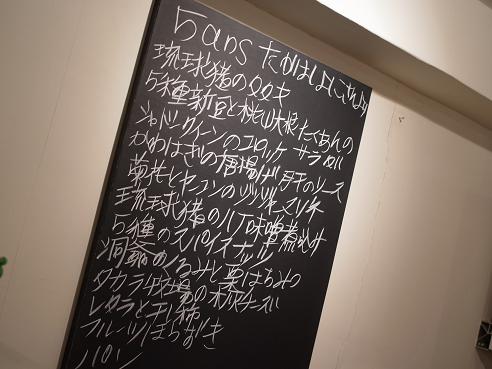 5ans たかはしよしこさんより
琉球猪のタタキ
5種新豆と桃山大根たくあんの サラダ
シャドークイーンのコロッケ
かわはぎの唐揚げ 肝のソース
菊芋とヤーコンの
琉球猪の八丁味噌煮込み
5種のスパイスナッツ
洞爺のくるみと栗はちみつ
タカラ牧場の チーズ
レタラと干し柿
フルーツほおずき
パン